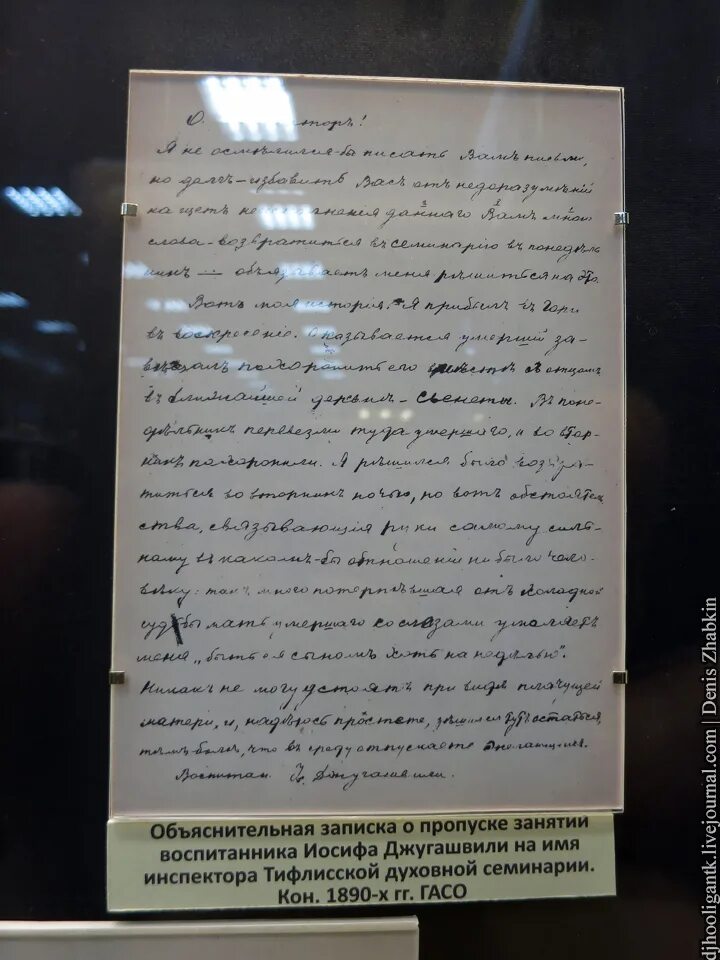 О. кторъ!
Я не осмѣлился-бы писать Вамъ письмо,
но долгъ-избавить Васъ отъ недоразумѣній
на щетъ не нія даннаго Вамъ мною
слова-возвратиться въ семинарію въ понедѣль
никъ — обязываетъ меня рѣшиться на это.
Вотъ моя исторія. Я прибылъ въ Гори
въ воскресеніе. Оказывается умершій за-
вѣщалъ похоронить его вмѣстѣ съ отцомъ
въ ближайшей деревнѣ-Свенеты. Въ поне-
дѣльникъ перевезли туда умершаго, и во втор-
никъ похоронили. Я рѣшился было возвра-
титься во вторникъ ночью, но вотъ обстоятель
ства, связывающія руки самому силь-
ному въ какомъ-бы отношеніи ни было чело-
вѣку: такъ много потерпѣвшая отъ холодной
судьбы мать умершаго со слезами умоляетъ
меня „быть ея сыномъ хоть на недѣлью".
Никакъ не могу устоять при видѣ плачущей
матери, и, надѣюсь простете, рѣшился тутъ остаться,
тѣмъ болѣе, что въ среду отпускаете желающихъ.
Воспитан. І. Джугашвили.
Объяснительная записка о пропуске занятий
воспитанника Иосифа Джугашвили на имя
инспектора Тифлисской духовной семинарии.
Кон. 1890-х гг. ГАСО
djhooligantk.livejournal.com | Denis Zhabkin